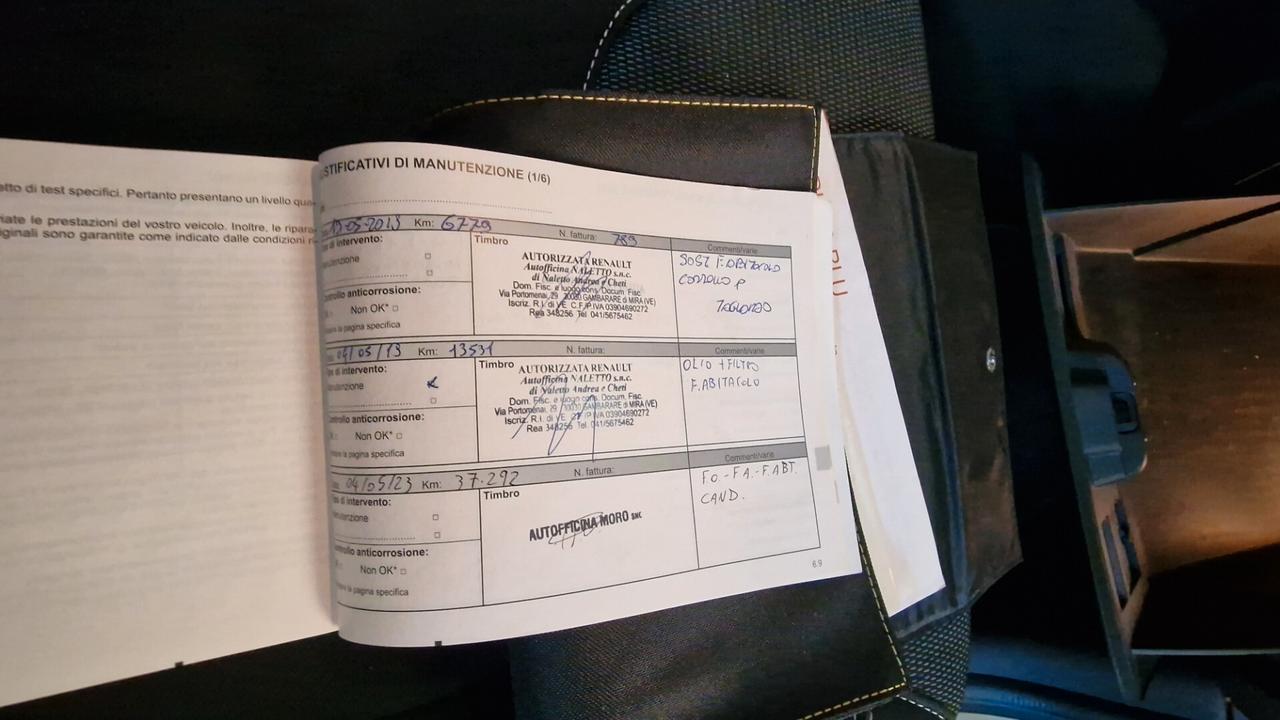 STIFICATIVI DI MANUTENZIONE (1/6)
etto di test specifici. Pertanto presentano un livello qua
iate le prestazioni del vostro veicolo. Inoltre, le ripara
iginali sono garantite come indicato dalle condizioni
Km: 6779 N. fattura: 789 Commenti/varie
di intervento:
Manutenzione
Controllo anticorrosione:
Non OK* □
la pagina specifica
Timbro
AUTORIZZATA RENAULT
Autofficina NALETTO s.n.c.
di Naletto Andrea e Cheti
Dom. Fisc. e luogo cons. Docum. Fisc.
Via Portomenai, 29 30030 GAMBARARE di MIRA (VE)
Iscriz. R.I. di VE C.F./P.IVA 03904690272
Rea 348256 Tel. 041/5675462
SOST F. ABITACOLO
09/05/13 Km: 13531 N. fattura: Commenti/varie
di intervento:
Manutenzione
Controllo anticorrosione:
Non OK* □
la pagina specifica
Timbro
AUTORIZZATA RENAULT
Autofficina NALETTO s.n.c.
di Naletto Andrea e Cheti
Dom. Fisc. e luogo cons. Docum. Fisc.
Via Portomenai, 29 30030 GAMBARARE di MIRA (VE)
Iscriz. R.I. di VE C.F./P.IVA 03904690272
Rea 348256 Tel. 041/5675462
OLIO + FILTRO
F. ABITACOLO
04/05/23 Km: 37.292 N. fattura: Commenti/varie
di intervento:
Manutenzione
Controllo anticorrosione:
Non OK* □
la pagina specifica
Timbro
AUTOFFICINA MORO SNC
FO.-FA.-F.ABT.
CAND.
6.9